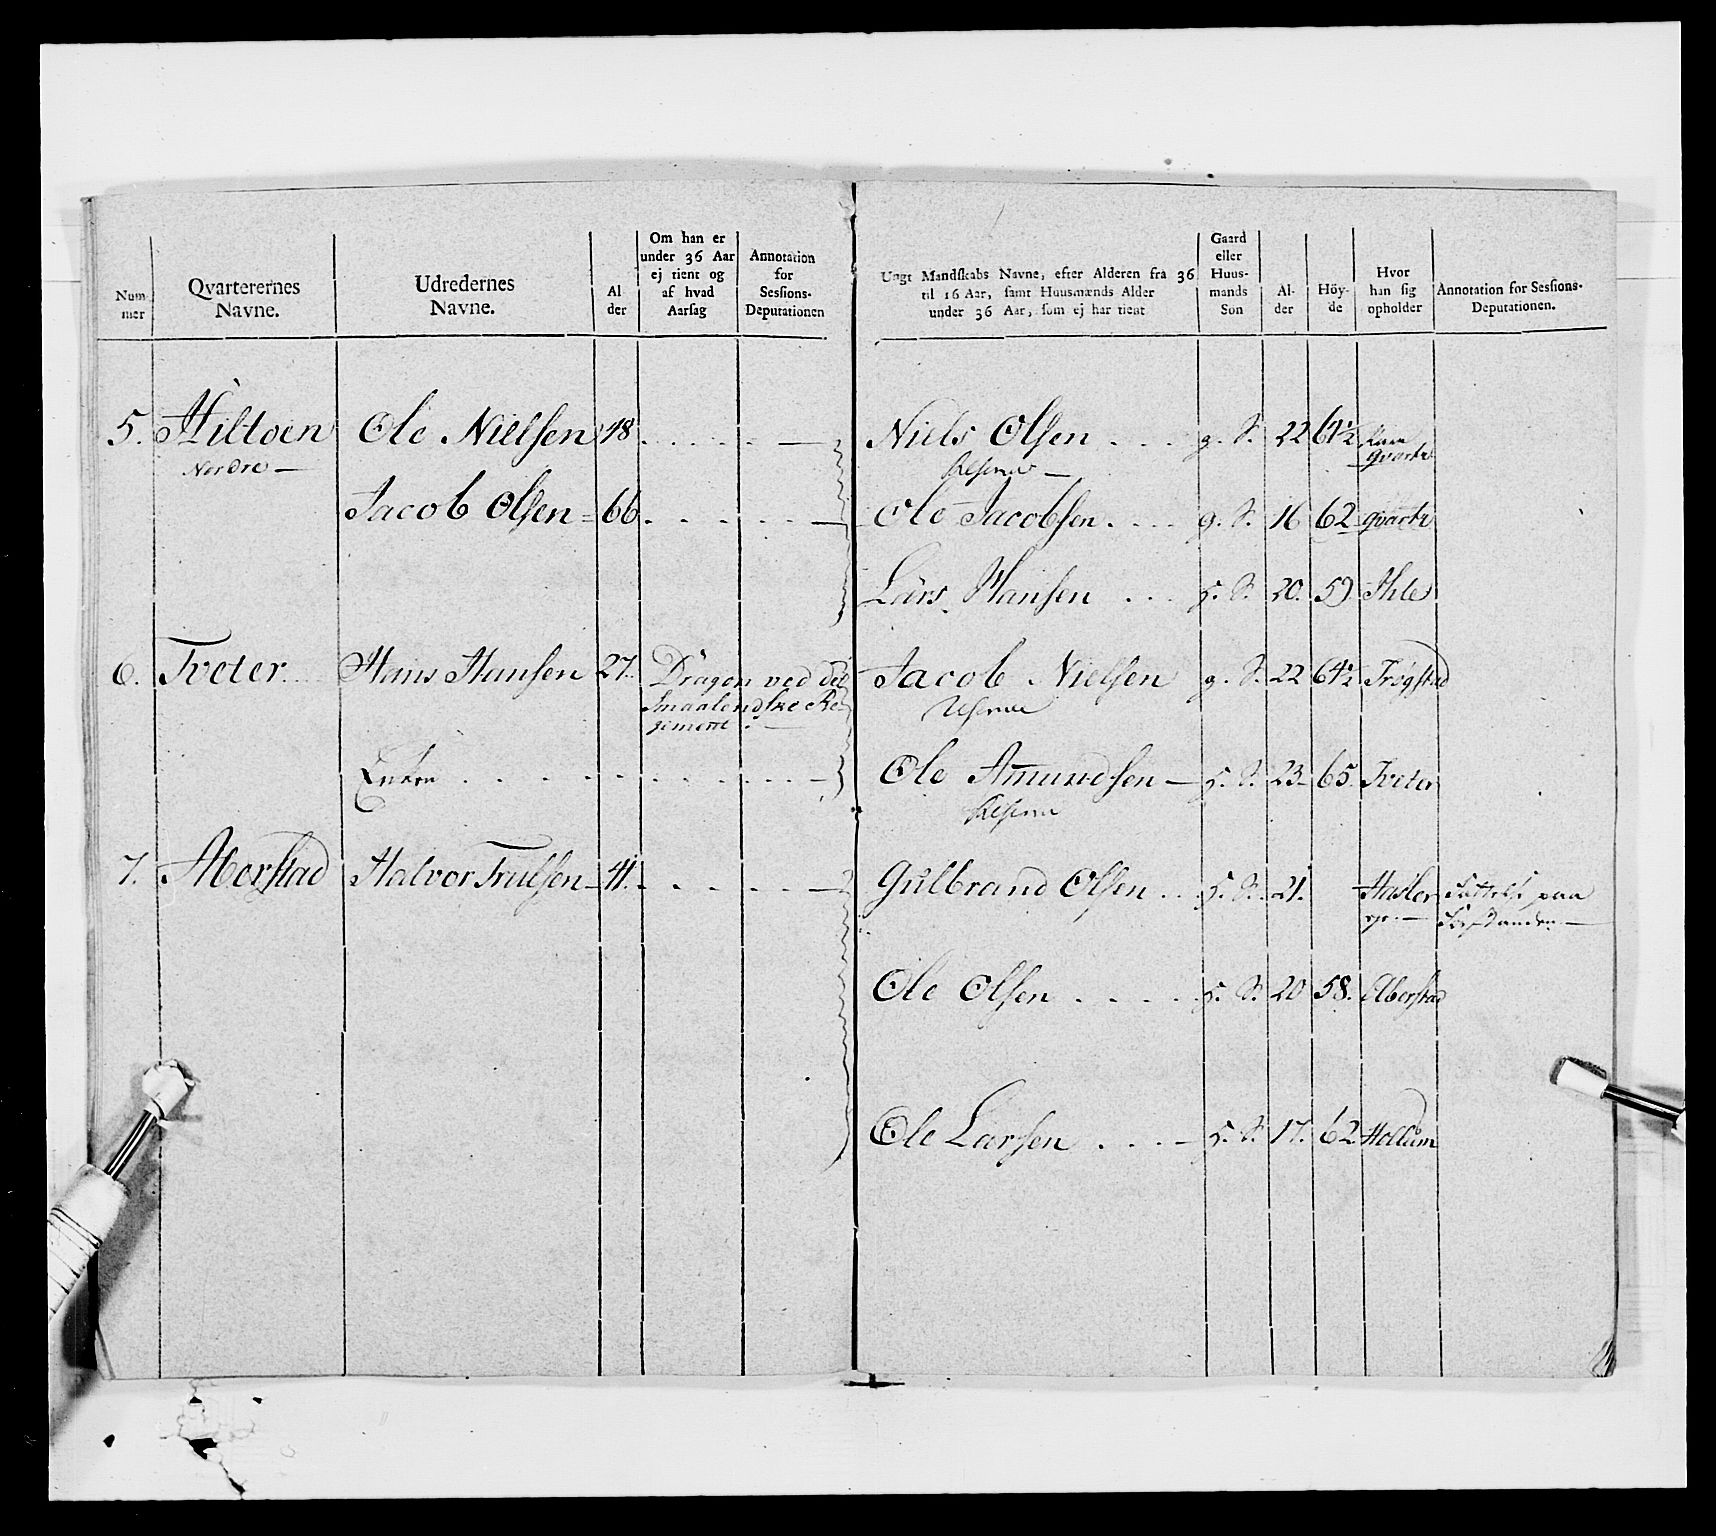 Num
mer
Qvarterernes
Navne.
Udredernes
Navne.
Al
der
Om han er
under 36 Aar
ej tient og
af hvad
Aarsag
Annotation
for
Sessions-
Deputationen
Ungt Mandskabs Navne, efter Alderen fra 36
til 16 Aar, samt Huusmænds Alder
under 36 Aar, som ej har tient
Gaard
eller
Huus-
mands
Son
Al-
der
Höy-
de
Hvor
han sig
opholder
Annotation for Sessions-
Deputationen.
5. Hiltoen Ole Nielsen 48 Niels Olsen g. S. 22 64½
Nordre Reserve qvarte
Jacob Olsen 66 Ole Jacobsen g. S. 16 62 qvarte
Lars Hansen h. S. 20. 59 Ihle
6. Tveter Hans Hansen 27. Dragon ved det Jacob Nielsen g. S. 22 64½ Trøgstad
Smaalendske Re Reserve
giment
Enken Ole Amundsen h. S. 23 65. Tveter
Reserve
7. Aberstad Halvor Trulsen 41. Gulbrand Olsen h. S. 21. Hasler paa
Ole Olsen h. S. 20 58. Aberstad
Ole Larsen h. S. 17. 62 Hollum